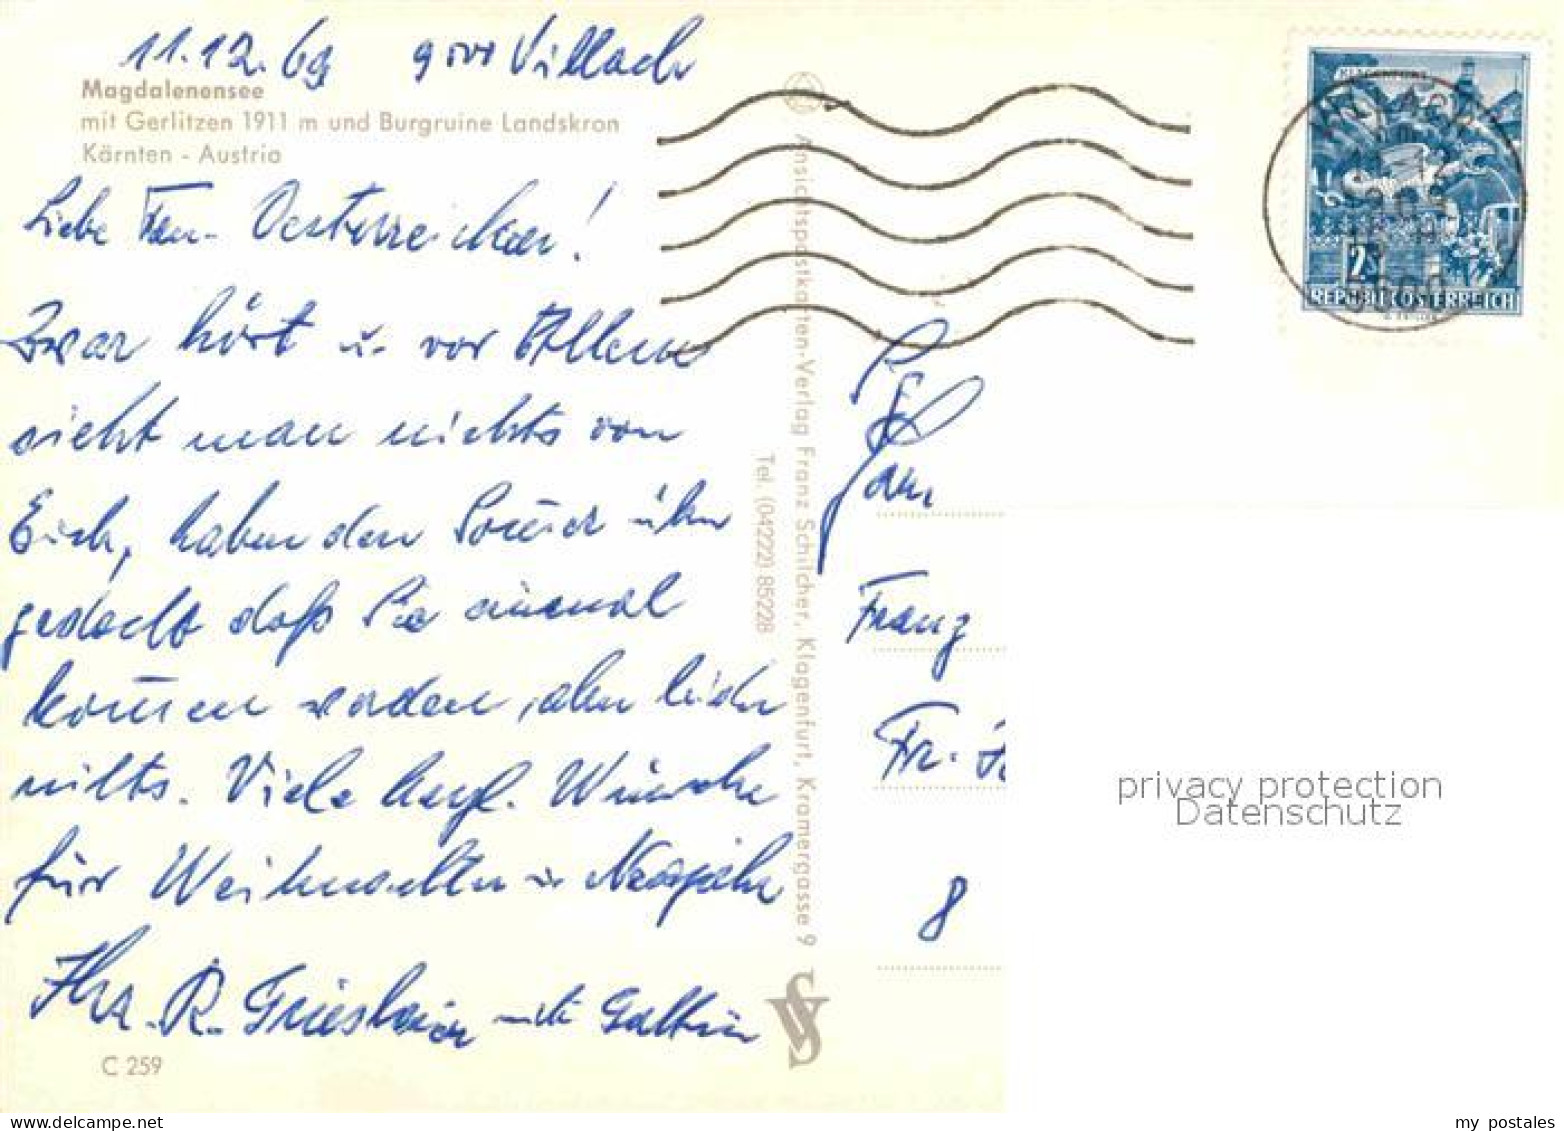 11.12.69 9500 Villach
Magdalenensee
mit Gerlitzen 1911 m und Burgruine Landskron
Kärnten - Austria
Liebe Fam. Oesterreicher!
Zwar hört u. vor Allem
sieht man nichts von
Euch, haben den Sommer über
gedacht daß Sie einmal
kommen werden, aber leider
nichts. Viele herzl. Wünsche
für Weihnachten u. Neujahr
Ihr R. mit Gattin
C 259
Ansichtspostkarten-Verlag Franz Schilcher, Klagenfurt, Kramergasse 9
Tel. (04222) 85228
VS
Fam.
Franz
Fr.
8
KLAGENFURT
2S
REPUBLIK ÖSTERREICH
VILLACH
privacy protection
Datenschutz
my postales